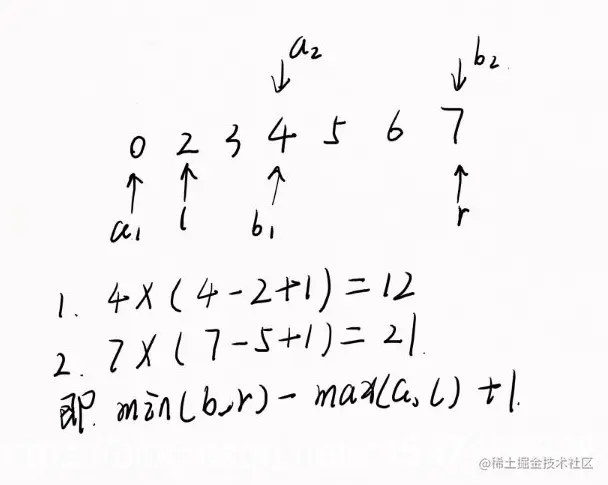 a₂ b₂
0 2 3 4 5 6 7
a₁ l b₁ r
1. 4×(4-2+1)=12
2. 7×(7-5+1)=21.
即. min(b,r)- max(a,l)+1.
@稀土掘金技术社区